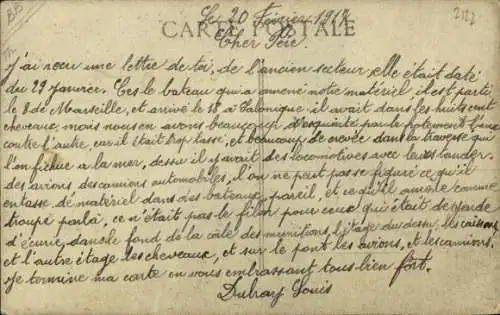 Le 20 Février 1917
CARTE POSTALE
Cher Père
J'ai reçu une lettre de toi, de l'ancien secteur, elle était daté
du 29 Janvier. Ces le bateau qui a amené notre matériel il est parti
le 8 de Marseille, et arrivé le 18 à Salonique il avait dans les huits cent
chevaux, mais nous en avons beaucoup d'esquinté par le frotement l'aux
contre l'autre, car il était trop tassé, et beaucoup de crevée dans la traversé que
l'on fichue a la mer, dessu il y avait des locomotives avec leurs tander.
des avions, des camions automobiles, l'on ne peut pas se figuré ce qu'il
entasse, de matériel dans des bateaux pareil, et ce qu'il amène comme
troupe par là, ce n'était pas le filon pour ceux qui était de garde
d'écurie, dans le fond de la cale des munitions, l'étage du dessu, les caissons
et l'autre étage les chevaux, et sur le pont les avions, et les camions.
Je termine ma carte en vous embrassant tous bien fort.
Dubray Louis